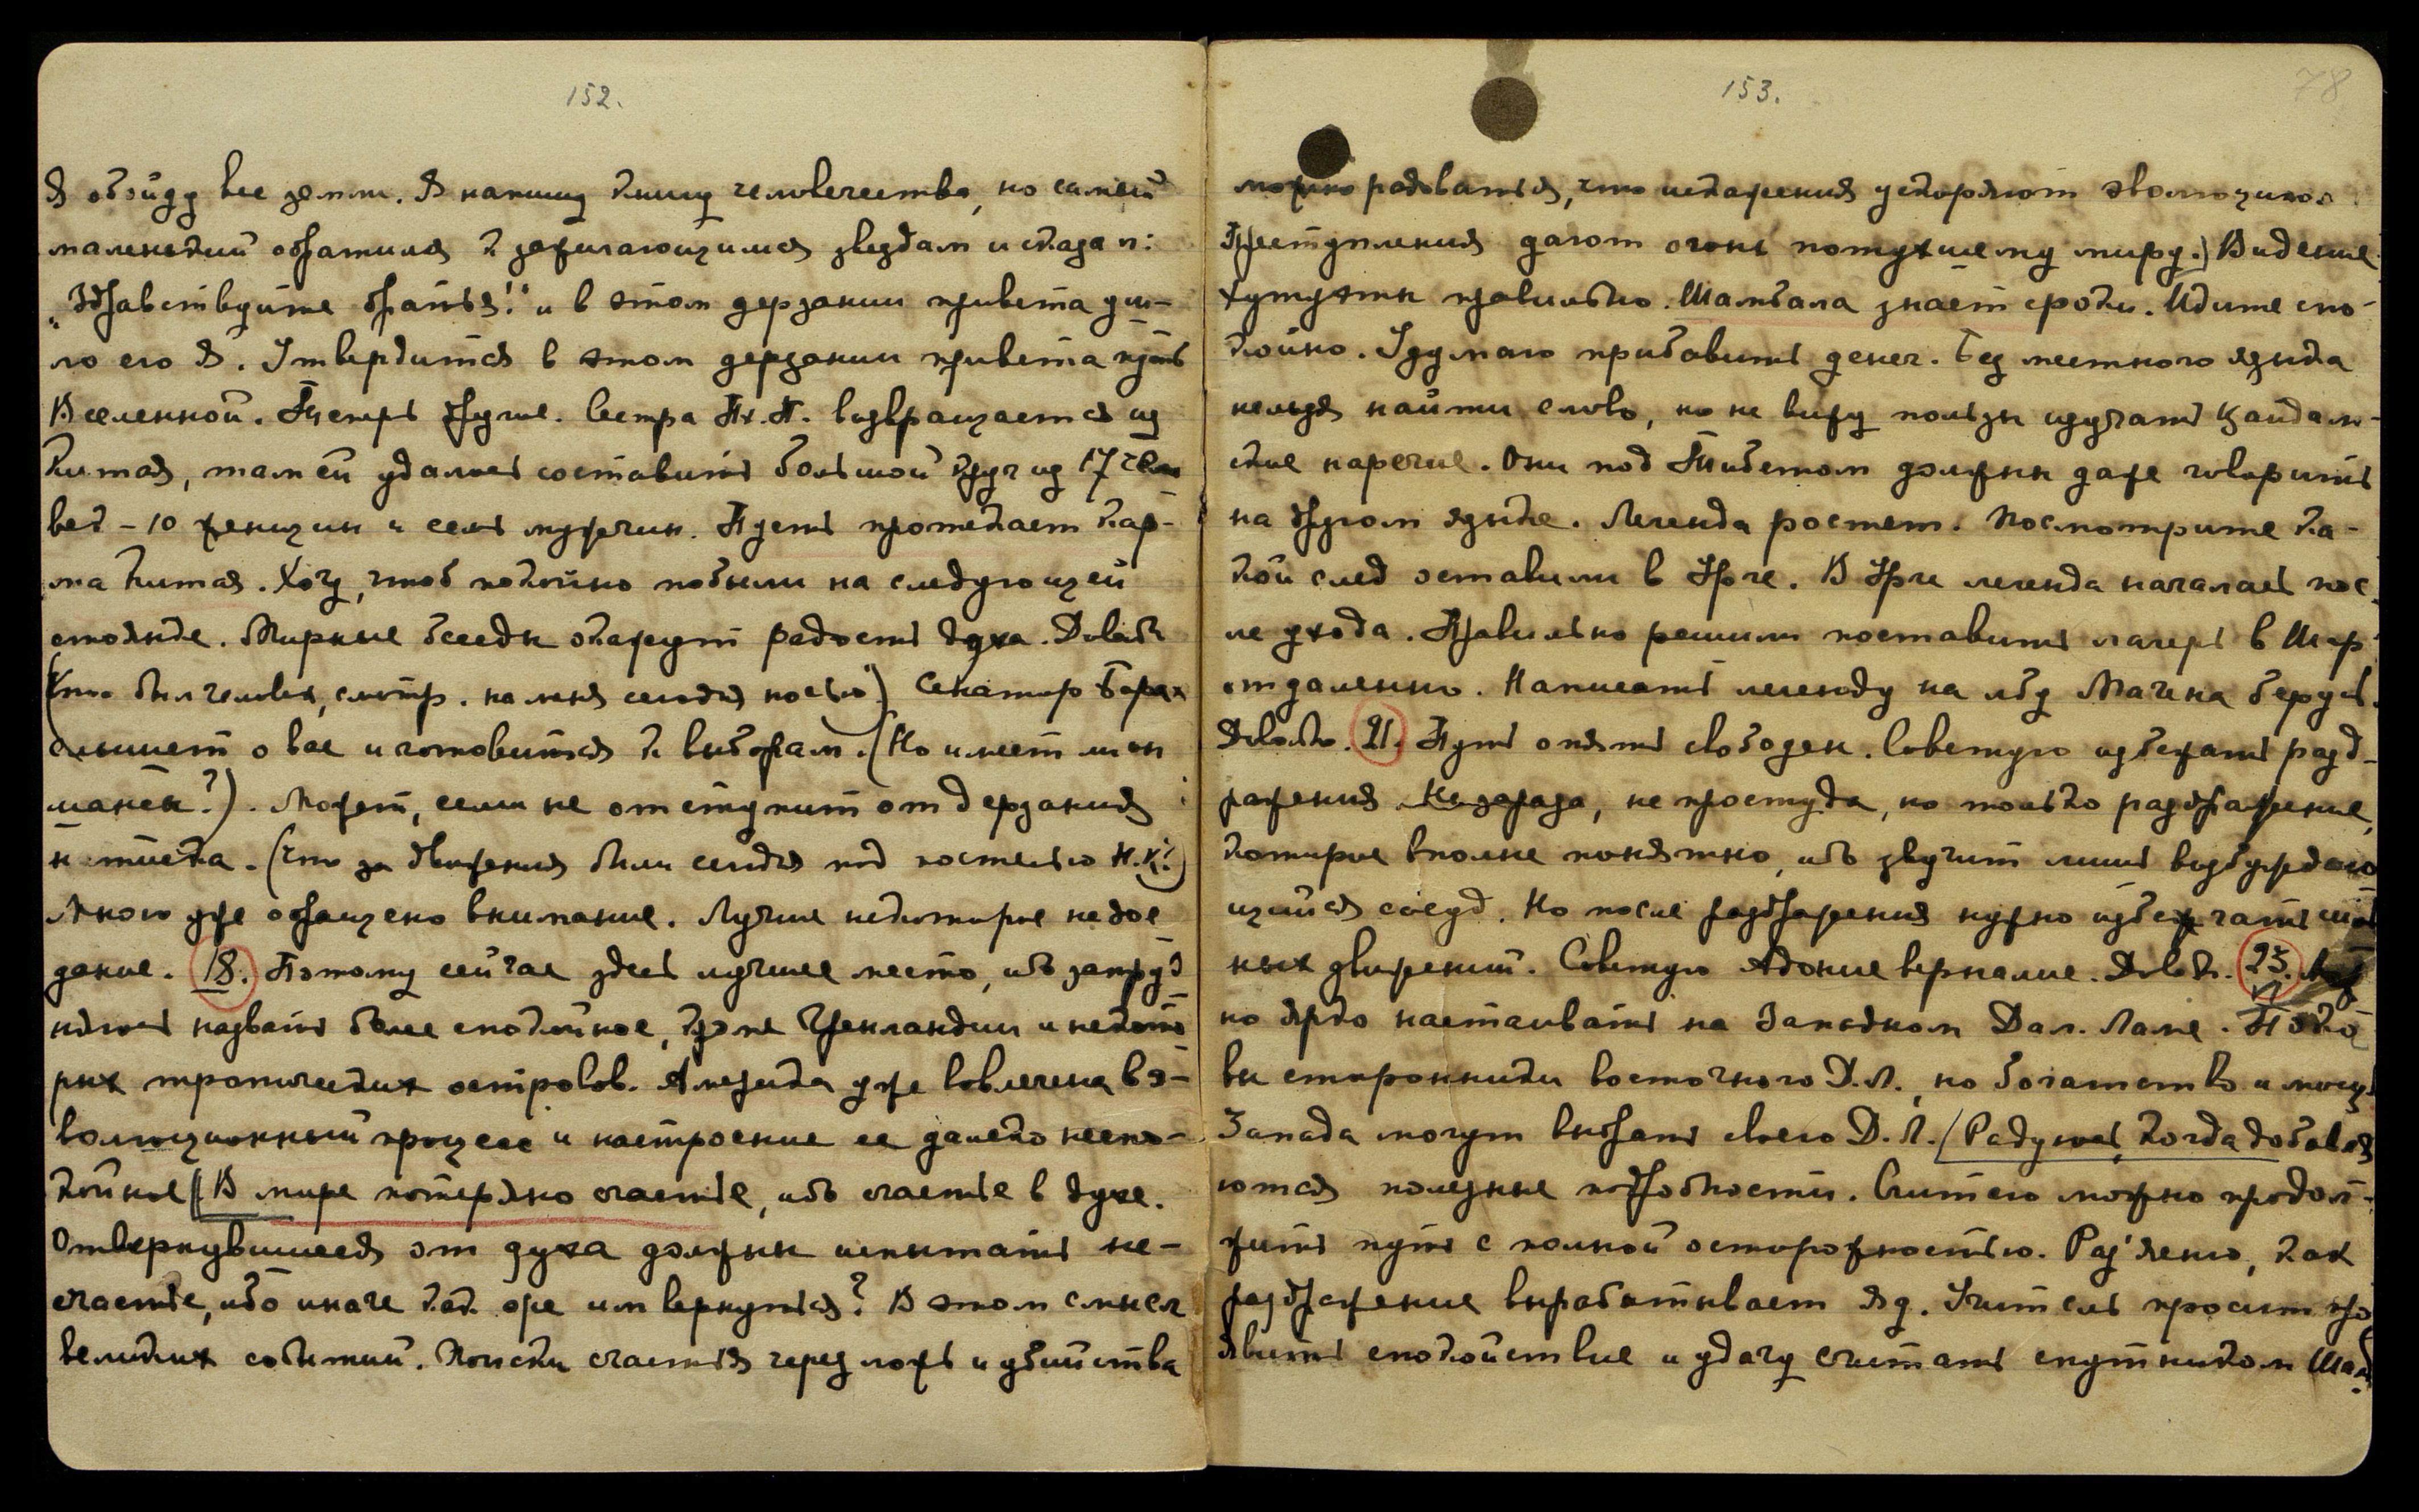 152.
Я обойду все земли. Я напишу книгу человечества, но самый
маленький обратился к зажигающимся звездам и сказал:
„Здравствуйте братья!" и в этом дерзании привета уш-
ло его Я. Утвердится в этом дерзании привета путь
Вселенной. Теперь другие. Сестра возвращается из
Китая, там ей удалось составить большой круг из 17 чело
век – 10 женщин и семь мужчин. Пусть протекает кар-
ма Китая. Хочу, чтоб покойно побыли на следующей
стоянке. Мирные беседы окажут радость духа. Довольно.
(Кто был человек, смотр. на меня сегодня ночью) Сенатор Бора
слышет о вас и готовится к выборам. (Но имеет ли он
шансы?). Может, если не отступит от дерзания
(что за движения были сегодня под постелью Н.К?)
Много уже обращено внимание. Лучше некоторое недое
дание. 18. Потому сейчас здесь лучшее место, ибо затруд
няюсь назвать более спокойное, кроме Гренландии и некото
рых тропических островов. Америка уже вовлечена в э-
волюционный процесс и настроение ее далеко неспо-
койное (В мире потеряно счастье, ибо счастье в духе.
Отвернувшиеся от духа должны испытать не-
счастье, ибо иначе как же им вернуться? В этом смысл
великих событий. Поиски счастья через ложь и убийства
153.
78
можно радоваться, что искажения ускоряют эволюцию.
Преступления дают огонь потухшему миру.) Видение
хутухты правильно. Шамбала знает сроки. Идите спо-
койно. Удумаю прибавить денег. Без местного языка
нельзя найти слово, но не вижу пользы изучать Цайдам-
ские наречие. Они под Тибетом должны даже говорить
на другом языке. Легенда ростет. Посмотрите ка-
кой след оставили в Урге. В Урге легенда началась пос
ле ухода. Правильно решили поставить лагерь в Шар
отдаленно. Написать легенду на лбу Магена берусь.
Довольно. 21. Путь опять свободен. Советую избежать разд-
ражения. Не зараза, не простуда, но только раздражение,
которое вполне понятно, ибо звучит лишь возбуждаю
щийся сосуд. Но после раздражения нужно избегать силь
ных движений. Советую Адонис верналис. Довольно. 23. Мож
но ярко настаивать на Западном Дал. Ламе. Тако
вы сторонники восточного Д.Л., но богатство и мощь
Запада могут выбрать своего Д.Л. (Радуюсь, когда добавля
ются полезные подробности. Считаю можно продол-
жить путь с полной осторожностью. Раз'ясню, как
раздражение вырабатывает яд. Учитель просит про
явить спокойствие и удачу считать спутником Шам